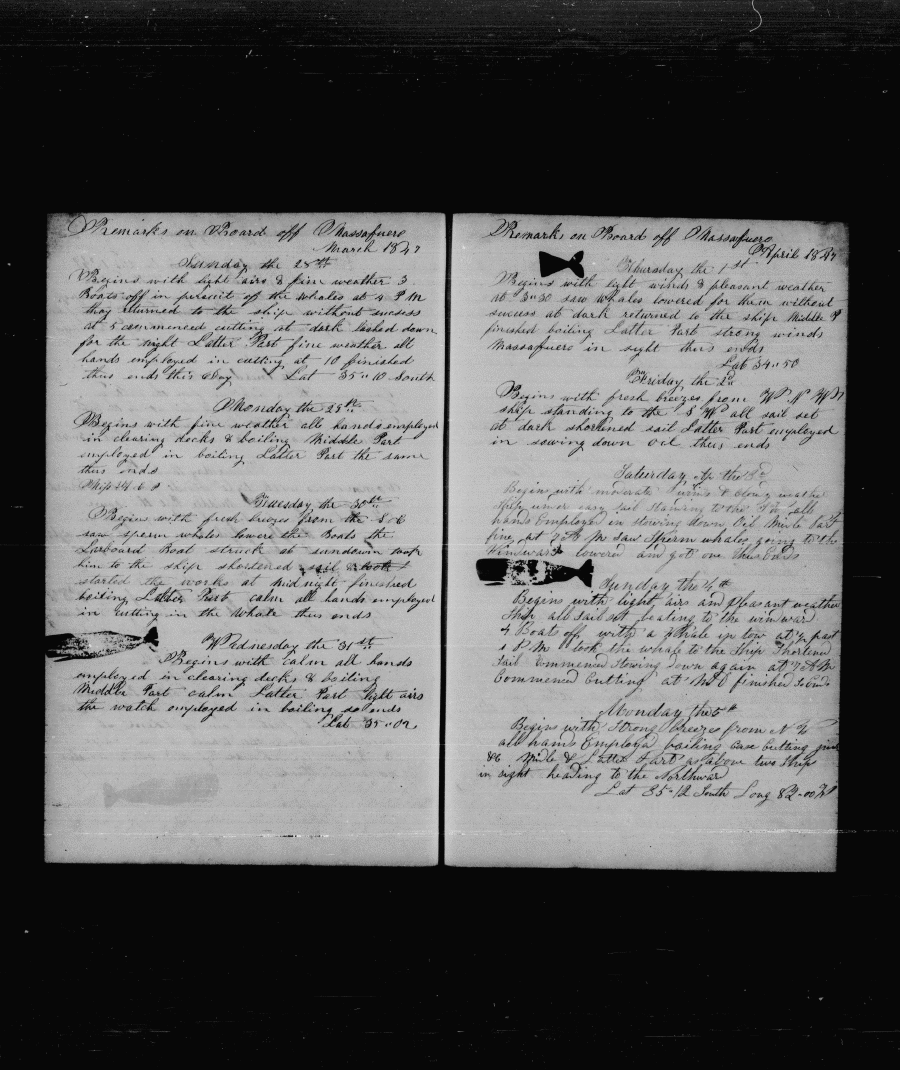 Remarks on Board off Massafuero
March 1847
Sunday the 28th
Begins with light airs & fine weather 3
Boats off in persuit of the whales at 4 P M
they returned to the ship without sucsess
at 5 commenced cutting at dark lashed down
for the night Latter Part fine weather all
hands employed in cutting at 10 finished
thus ends this day Lat 35"10 South
Monday the 29th
Begins with fine weather all hands employed
in clearing decks & boiling Middle Part
employed in boiling Latter Part the same
thus ends
Tuesday the 30th
Begins with fresh breezes from the S & E
saw sperm whales lowere the Boats the
Larboard Boat struck at sundown took
him to the ship shortened sail & took
started the works at Midnight finished
boiling Latter Part calm all hands employed
in cutting in the whale thus ends
Wednesday the 31st
Begins with calm all hands
employed in clearing decks & boiling
Middle Part calm Latter Part light airs
the watch employed in boiling so ends
Lat 35"02
Remarks on Board off Massafuero
April 1847
Thursday the 1st
Begins with light winds & pleasant weather
at 3"30 saw whales lowered for them without
success at dark returned to the ship Middle P
finished boiling Latter Part strong winds
Massafuero in sight thus ends
Lat 34"50
Friday the 2nd
Begins with fresh breezes from W N W
ship standing to the S W all sail set
at dark shortened sail Latter Part employed
in sowing down oil thus ends
Saturday the 3rd
Begins with moderate winds & clowy weather
Ship under easy sail all
hands Employed in Stowing down Oil Midle Part
fine at 7 A M Saw Sperm whales going to the
Windward lowered and got one thus Ends
Sunday the 4th
Begins with light airs and pleasant weather
Ship all sail set beating to the winward
4 Boats off with a whale in tow at ½ past
1 P.M took the whale to the Ship Shortened
Sail Commenced Stowing down again at 7 A M
Commenced Cutting at finished So Ends
Monday the 5th
Begins with Strong Breezes from N W
all hands Employed boiling Case Cutting junk
&c Midle & Latter Part as above two Ships
in sight heading to the Northward
Lat 35-12 South Long 82-00 W